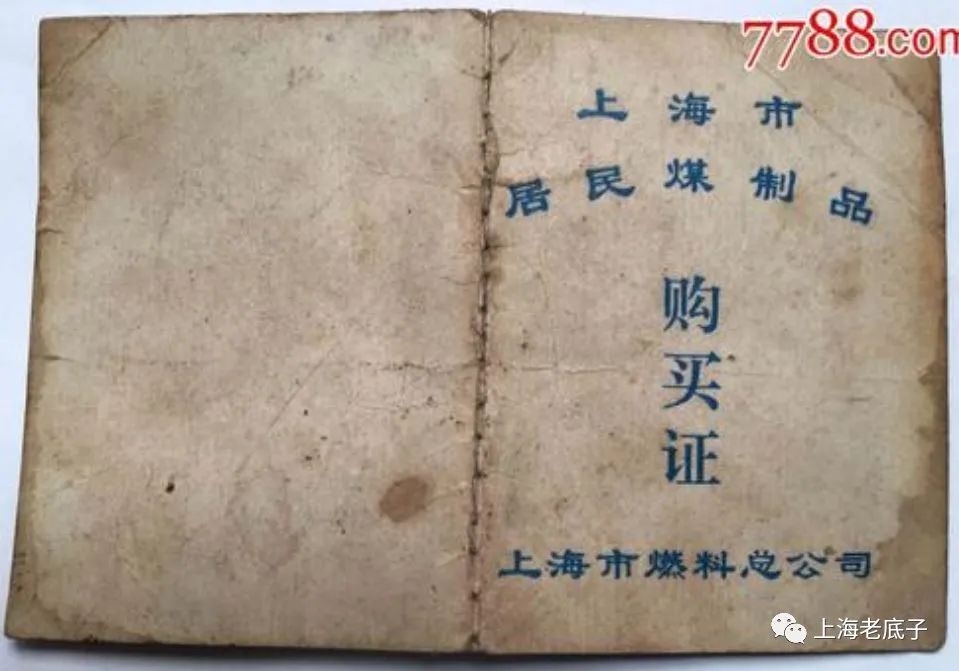 7788.com
上海市
居民煤制品
购
买
证
上海市燃料总公司
上海老底子